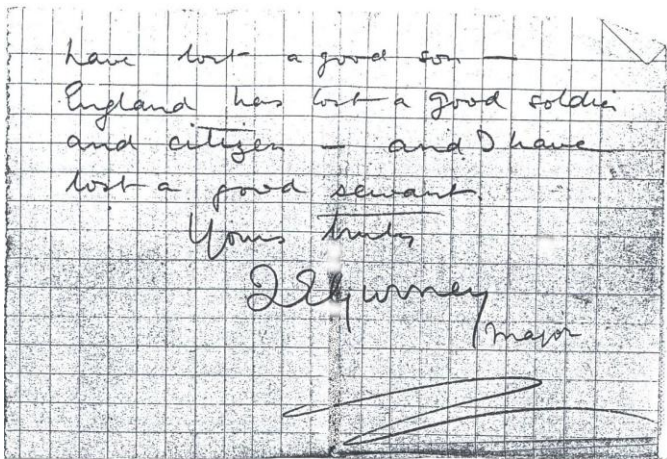 have lost a good son —
England has lost a good soldier
and citizen — and I have
lost a good servant.
Yours truly
Gurney
Major